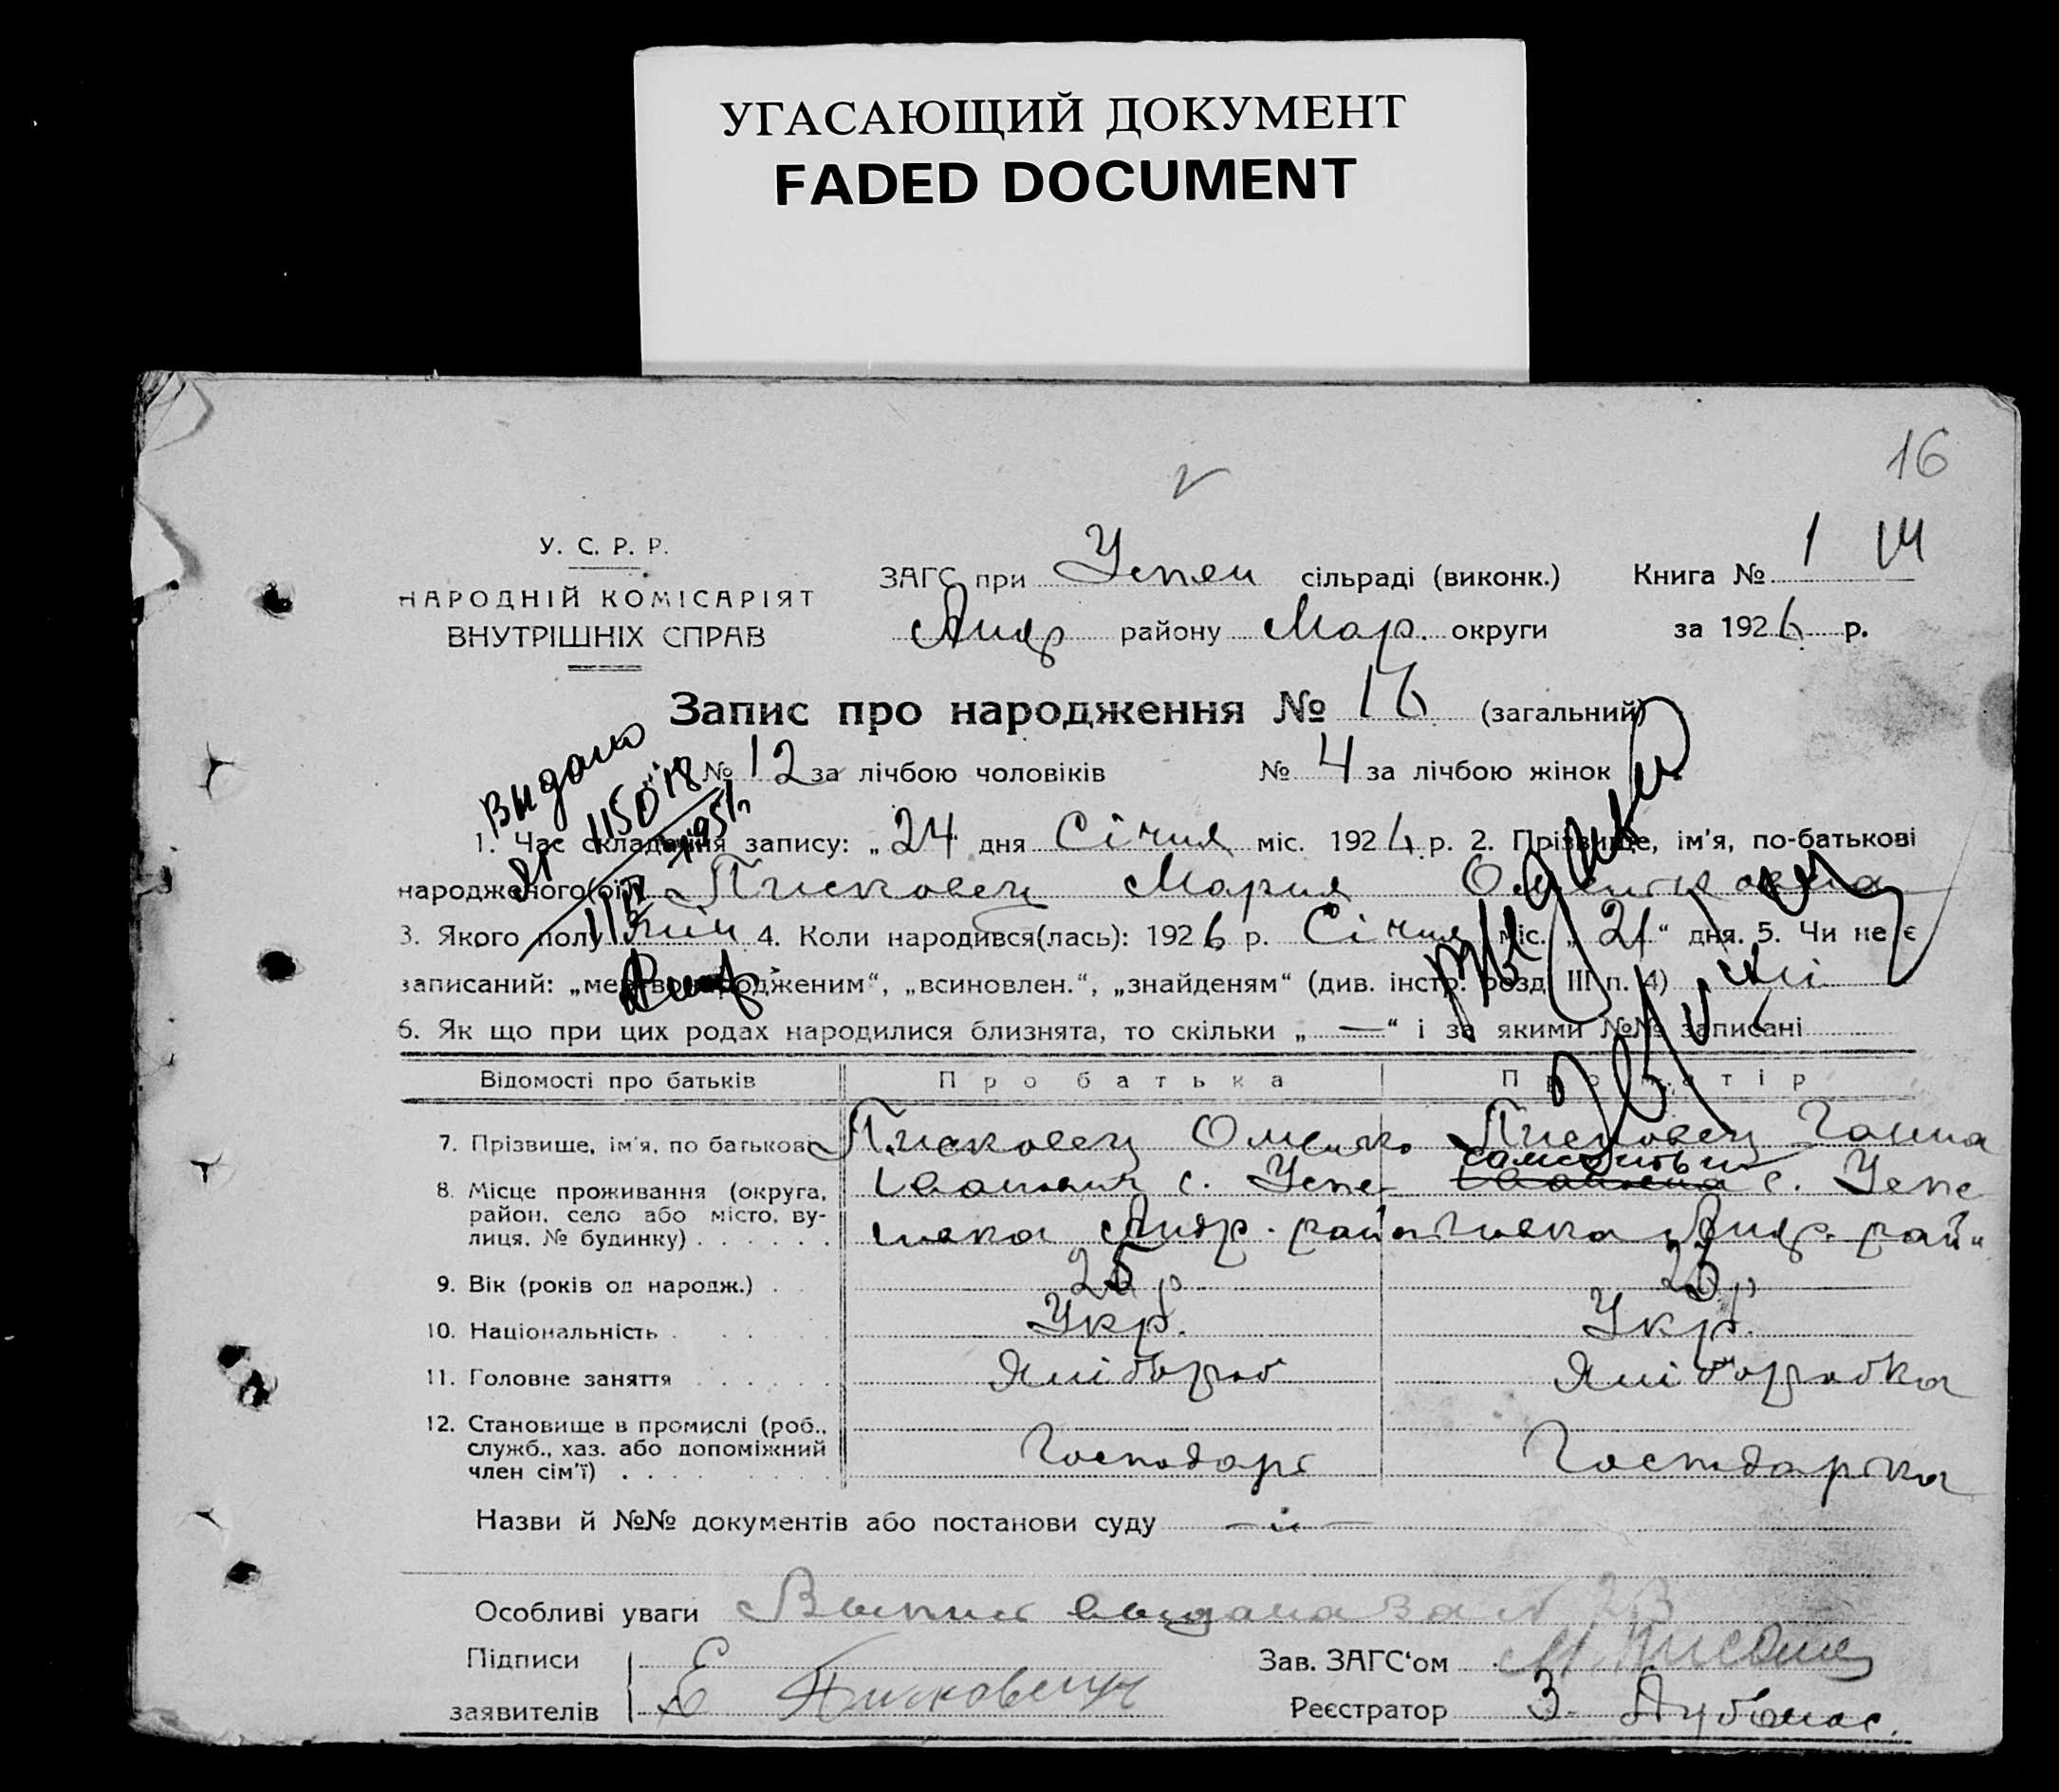 УГАСАЮЩИЙ ДОКУМЕНТ
FADED DOCUMENT
16
У. С. Р. Р.
НАРОДНІЙ КОМІСАРІЯТ
ВНУТРІШНІХ СПРАВ
ЗАГС при Успен сільраді (виконк.) Книга № 1
Андр району Мар. округи за 1926 р.
Запис про народження № 16 (загальний)
Видано
№ 12 за лічбою чоловіків № 4 за лічбою жінок
1. Час складання запису: „24 дня Січня міс. 1926 р. 2. Прізвище, ім'я, по-батькові
народженого(ої) Писковец Мария
3. Якого полу жін 4. Коли народився(лась): 1926 р. Січня міс. „21“ дня. 5. Чи не є
записаний: „мертвонародженим“, „всиновлен.“, „знайденям“ (див. інстр. розд. III п. 4) ні
6. Як що при цих родах народилися близнята, то скільки „—“ і за якими №№ записані
Відомості про батьків Про батька Про матір
7. Прізвище, ім'я, по батькові Писковец Омелько Писковец Ганна
8. Місце проживання (округа, район, село або місто, вулиця, № будинку) Іванович с. Успе- с. Успе
нвка Андр. район нвка Андр. район
9. Вік (років од народж.) 25 р 25 р
10. Національність Укр. Укр.
11. Головне заняття Хлібороб Хліборобка
12. Становище в промислі (роб., служб., хаз. або допоміжний член сім'ї) Господарь Господарька
Назви й №№ документів або постанови суду —„—
Особливі уваги Выпись выдана за №
Підписи
заявителів Е Писковец
Зав. ЗАГС'ом
Реєстратор З.